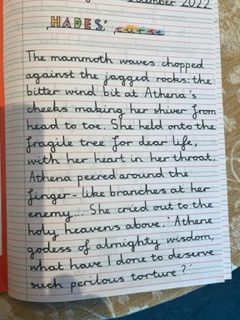 December 2022
HADES' curse
The mammoth waves chopped
against the jagged rocks; the
bitter wind bit at Athena's
cheeks making her shiver from
head to toe. She held onto the
fragile tree for dear life,
with her heart in her throat.
Athena peered around the
finger-like branches at her
enemy.... She cried out to the
holy heavens above, 'Athene
godess of almighty wisdom,
what have I done to deserve
such perilous torture?'